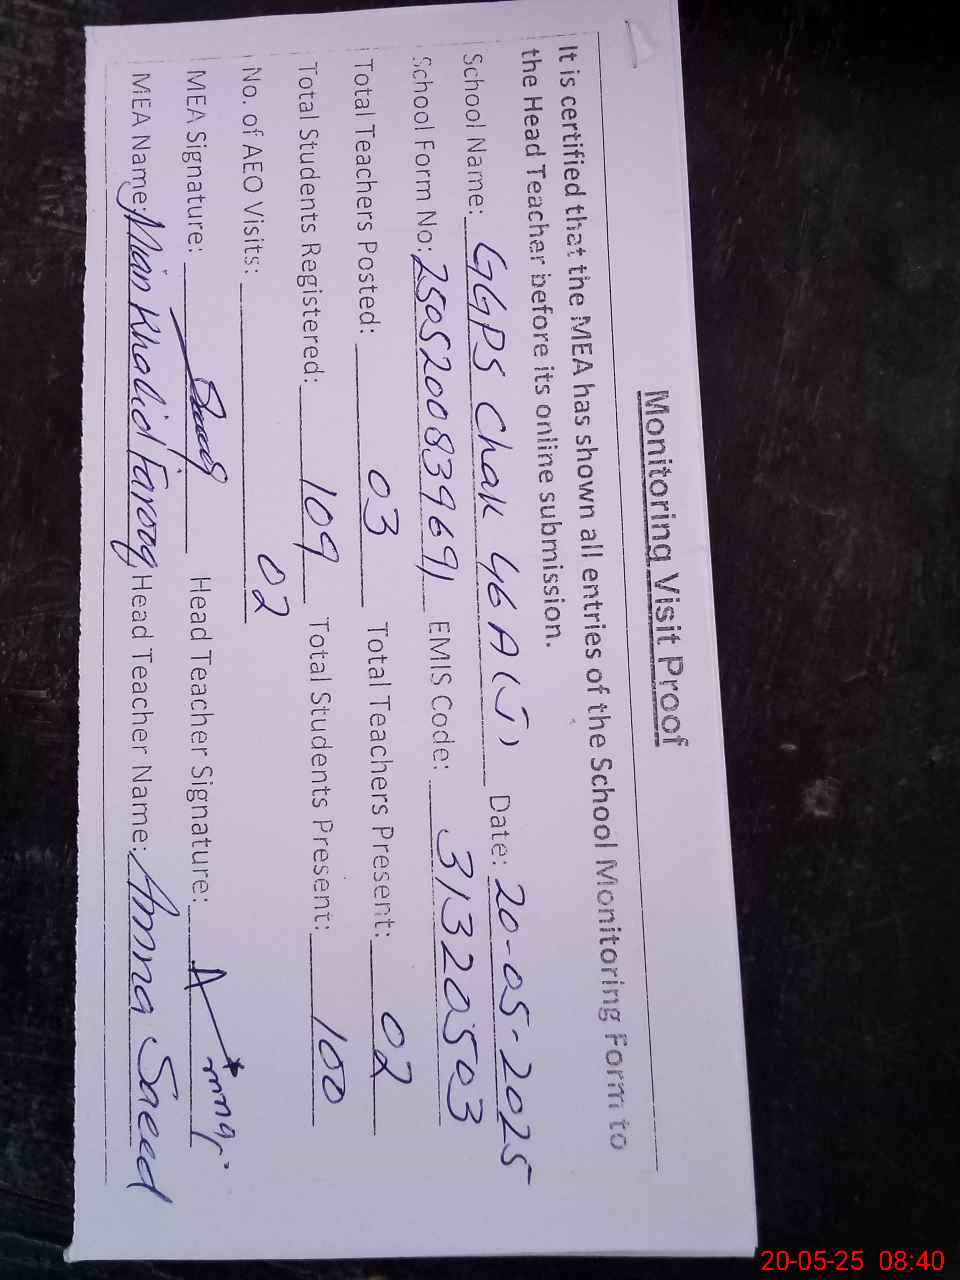 Monitoring Visit Proof
It is certified that the MEA has shown all entries of the School Monitoring Form to
the Head Teachar before its online submission.
School Name: GGPS Chak 46 A (J) Date: 20-05-2025
School Form No: 2505200839691 EMIS Code: 31320503
Total Teachers Posted: 03 Total Teachers Present: 02
Total Students Registered: 109 Total Students Present: 100
No. of AEO Visits: 02
MEA Signature: Head Teacher Signature: Amna
MEA Name: Mian Khalid Farooq Head Teacher Name: Amna Saeed
20-05-25 08:40